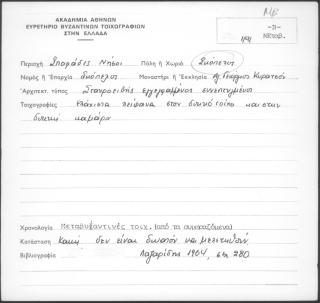 ΑΚΑΔΗΜΙΑ ΑΘΗΝΩΝ
ΕΥΡΕΤΗΡΙΟ ΒΥΖΑΝΤΙΝΩΝ ΤΟΙΧΟΓΡΑΦΙΩΝ
ΣΤΗΝ ΕΛΛΑΔΑ
Περιοχή Σποράδες Νήσοι Πόλη ή Χωριό Σκόπελος
Νομός ή Επαρχία Σκόπελος Μοναστήρι ή Εκκλησία Αγ. Γεώργιος
Αρχιτεκτ. τύπος Σταυροειδής εγγεγραμμένος συνεπτυγμένος
Τοιχογραφίες Ελάχιστα λείψανα στον δυτικό τοίχο και στην
δυτική καμάρα
Χρονολογία Μεταβυζαντινές τοιχ. (από τα συμφραζόμενα)
Κατάσταση Κακή, δεν είναι δυνατόν να μελετηθούν
Βιβλιογραφία Λαζαρίδης 1964, σελ 280